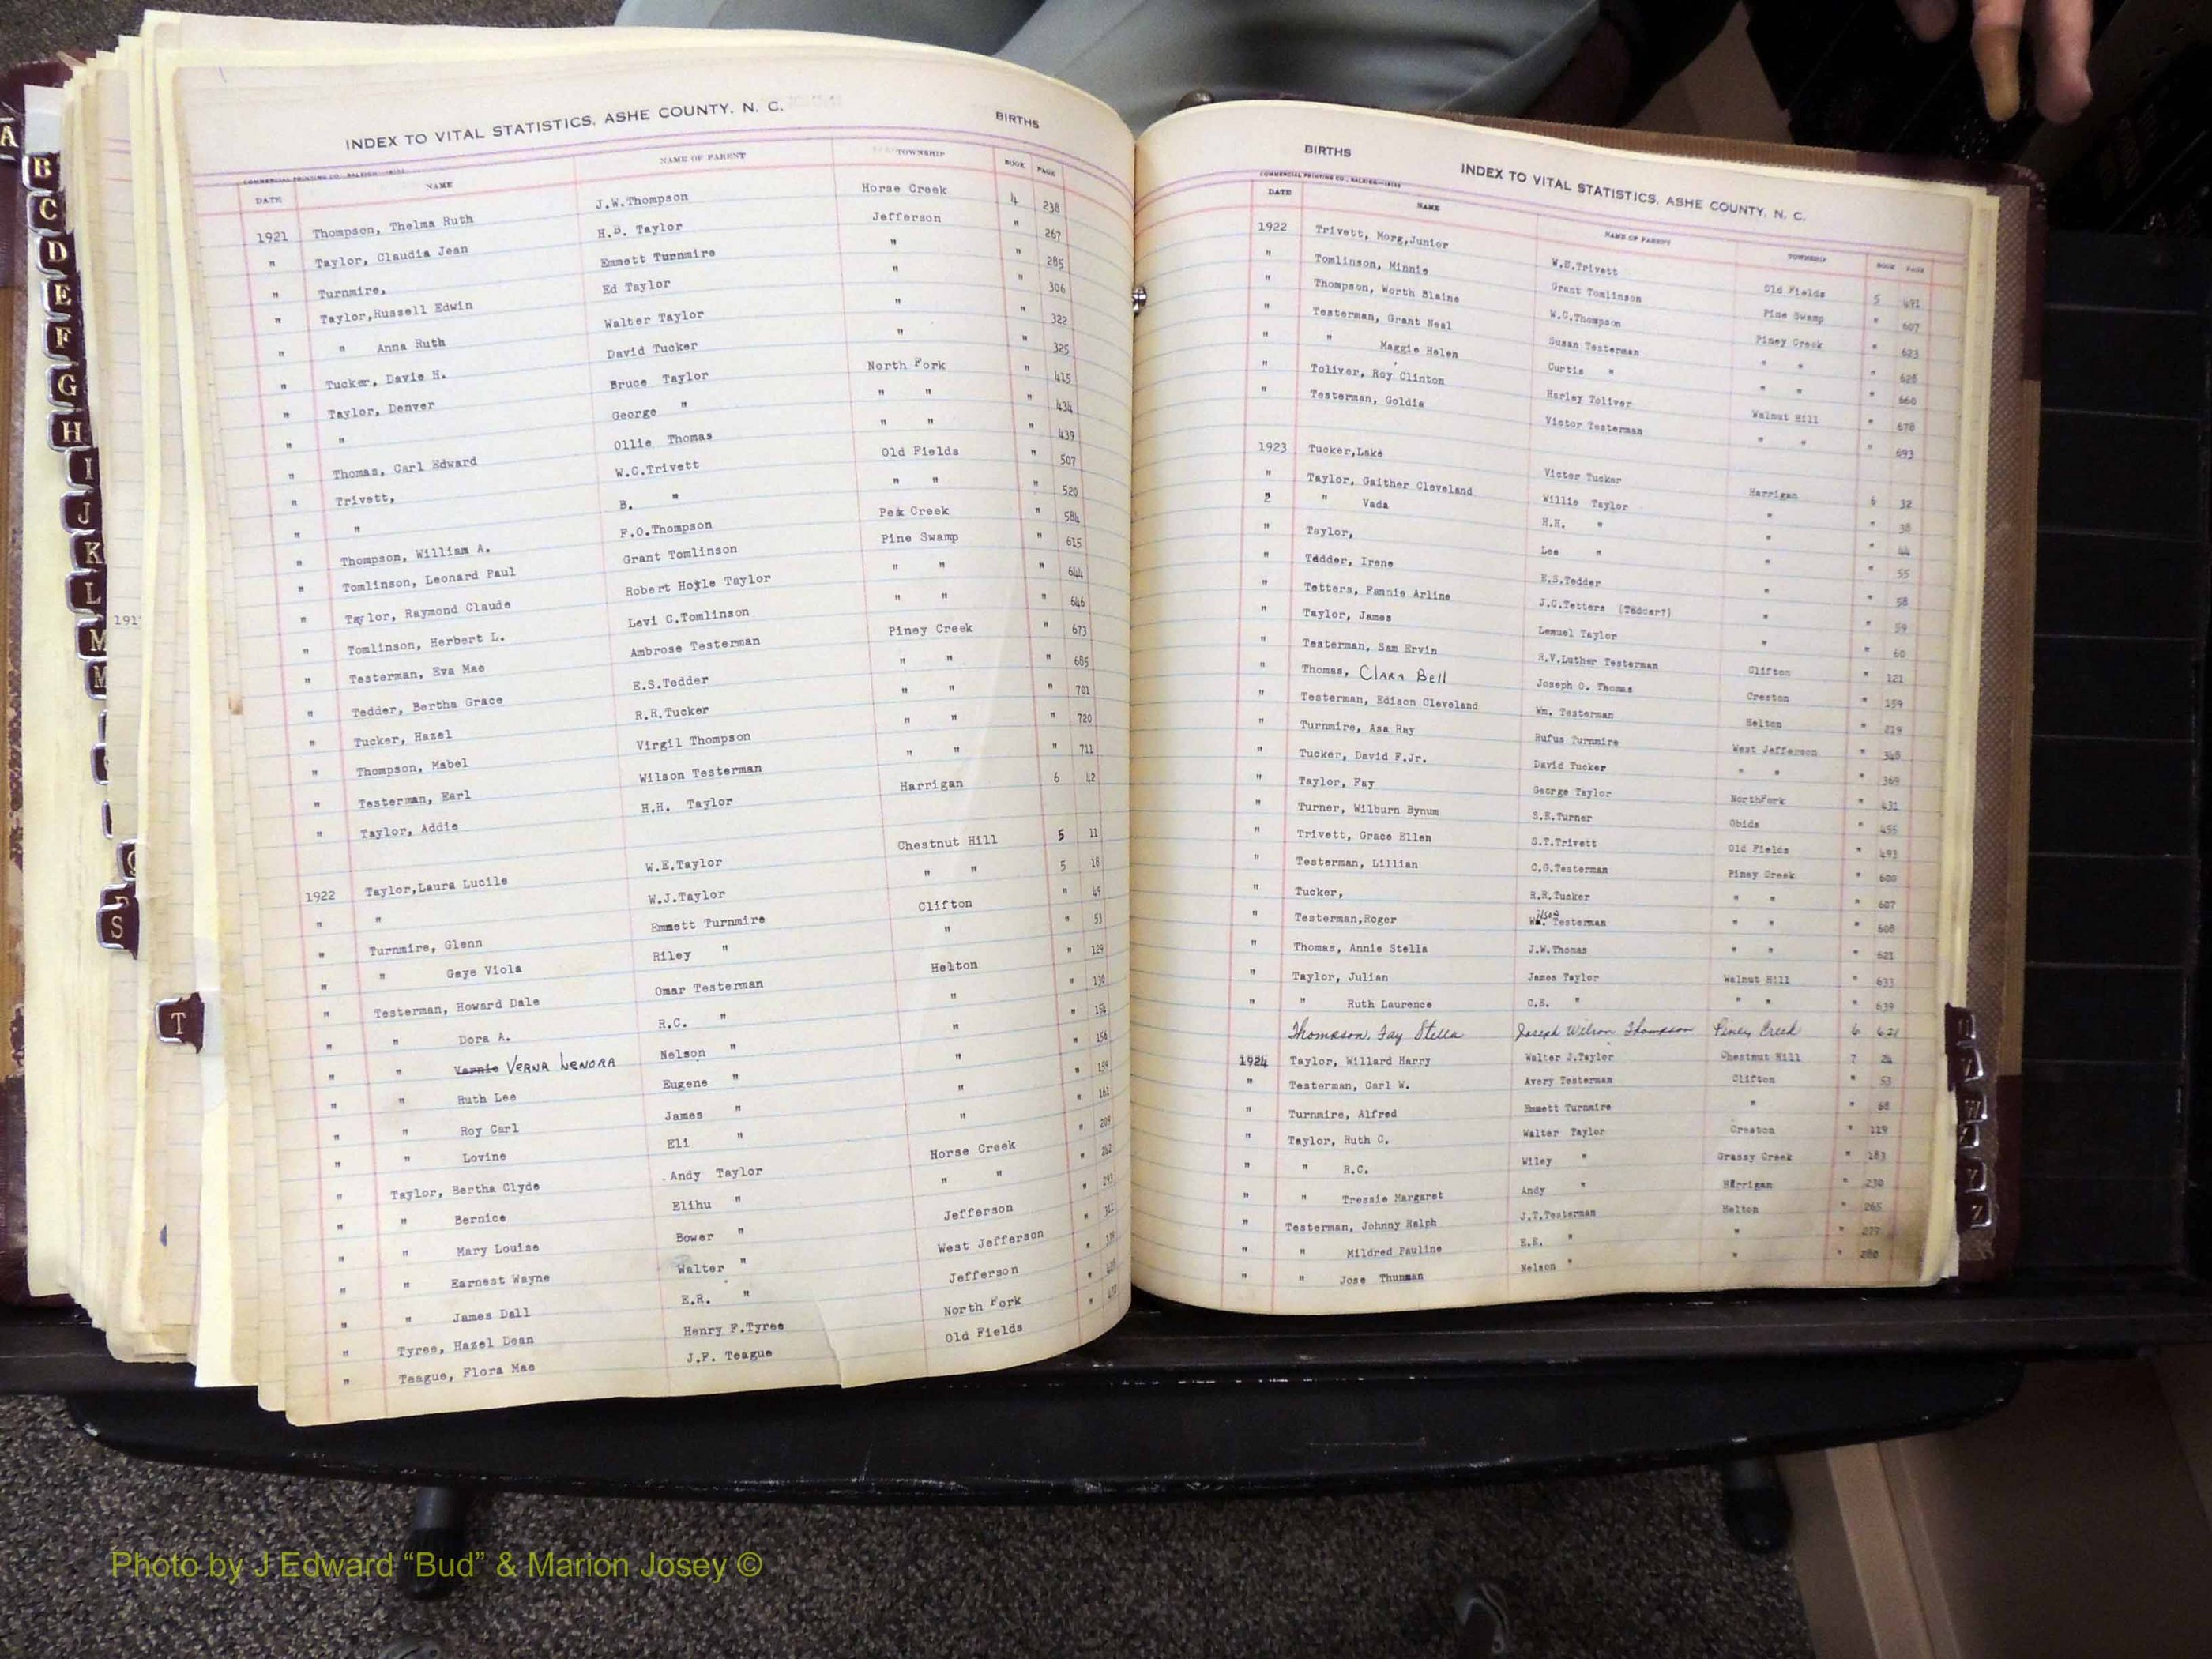 INDEX TO VITAL STATISTICS, ASHE COUNTY, N. C. BIRTHS
COMMERCIAL PRINTING CO., RALEIGH
DATE NAME NAME OF PARENT TOWNSHIP BOOK PAGE
1921 Thompson, Thelma Ruth J.W.Thompson Horse Creek 4 238
" Taylor, Claudia Jean H.B. Taylor Jefferson " 267
" Turnmire, Emmett Turnmire " " 285
" Taylor,Russell Edwin Ed Taylor " " 306
" " Anna Ruth Walter Taylor " " 322
" Tucker, Davie H. David Tucker " " 325
" Taylor, Denver Bruce Taylor North Fork " 415
" " George " " " " 434
" Thomas, Carl Edward Ollie Thomas " " " 439
" Trivett, W.C.Trivett Old Fields " 507
" " B. " " " " 520
" Thompson, William A. F.O.Thompson Peak Creek " 584
" Tomlinson, Leonard Paul Grant Tomlinson Pine Swamp " 615
" Taylor, Raymond Claude Robert Hoyle Taylor " " " 644
" Tomlinson, Herbert L. Levi C.Tomlinson " " " 646
" Testerman, Eva Mae Ambrose Testerman Piney Creek " 673
" Tedder, Bertha Grace E.S.Tedder " " " 685
" Tucker, Hazel R.R.Tucker " " " 701
" Thompson, Mabel Virgil Thompson " " " 720
" Testerman, Earl Wilson Testerman " " " 711
" Taylor, Addie H.H. Taylor Harrigan 6 42
1922 Taylor,Laura Lucile W.E.Taylor Chestnut Hill 5 11
" " W.J.Taylor " " 5 18
" Turnmire, Glenn Emmett Turnmire Clifton " 49
" " Gaye Viola Riley " " " 53
" Testerman, Howard Dale Omar Testerman Helton " 129
" " Dora A. R.C. " " " 130
" " Varnie VERNA LENORA Nelson " " " 154
" " Ruth Lee Eugene " " " 156
" " Roy Carl James " " " 159
" " Lovine Eli " " " 161
" Taylor, Bertha Clyde Andy Taylor Horse Creek " 209
" " Bernice Elihu " " " " 242
" " Mary Louise Bower " Jefferson " 293
" " Earnest Wayne Walter " West Jefferson "
" " James Dall E.R. " Jefferson "
" Tyree, Hazel Dean Henry F.Tyree North Fork "
" Teague, Flora Mae J.F. Teague Old Fields "
BIRTHS INDEX TO VITAL STATISTICS, ASHE COUNTY, N. C.
COMMERCIAL PRINTING CO., RALEIGH
DATE NAME NAME OF PARENT TOWNSHIP BOOK PAGE
1922 Trivett, Morg,Junior W.E.Trivett Old Fields 5 491
" Tomlinson, Minnie Grant Tomlinson Pine Swamp " 607
" Thompson, Worth Blaine W.C.Thompson Piney Creek " 623
" Testerman, Grant Neal Susan Testerman " " " 628
" " Maggie Helen Curtis " " " " 660
" Toliver, Roy Clinton Harley Toliver Walnut Hill " 678
" Testerman, Goldia Victor Testerman " " " 693
1923 Tucker,Lake Victor Tucker Harrigan 6 32
" Taylor, Gaither Cleveland Willie Taylor " " 38
" " Vada H.H. " " " 44
" Taylor, Lee " " " 55
" Tedder, Irene E.S.Tedder " " 58
" Tetters, Fannie Arline J.C.Tetters (Tedder?) " " 59
" Taylor, James Lemuel Taylor " " 60
" Testerman, Sam Ervin R.V.Luther Testerman Clifton " 121
" Thomas, CLARA BEll Joseph O. Thomas Creston " 159
" Testerman, Edison Cleveland Wm. Testerman Helton " 219
" Turnmire, Asa Ray Rufus Turnmire West Jefferson " 348
" Tucker, David F.Jr. David Tucker " " " 369
" Taylor, Fay George Taylor NorthFork " 431
" Turner, Wilburn Bynum S.E.Turner Obids " 455
" Trivett, Grace Ellen S.T.Trivett Old Fields " 493
" Testerman, Lillian C.G.Testerman Piney Creek " 600
" Tucker, R.R.Tucker " " " 607
" Testerman,Roger Wilson Testerman " " " 608
" Thomas, Annie Stella J.W.Thomas " " " 621
" Taylor, Julian James Taylor Walnut Hill " 633
" " Ruth Laurence C.E. " " " " 639
Thompson, Fay Stella Joseph Wilson Thompson Piney Creek 6 621
1924 Taylor, Willard Harry Walter J.Taylor Chestnut Hill 7 24
" Testerman, Carl W. Avery Testerman Clifton " 53
" Turnmire, Alfred Emmett Turnmire " " 68
" Taylor, Ruth C. Walter Taylor Creston " 119
" " R.C. Wiley " Grassy Creek " 183
" " Tressie Margaret Andy " Harrigan " 230
" Testerman, Johnny Ralph J.T.Testerman Helton " 265
" " Mildred Pauline E.E. " " " 277
" " Jose Thurman Nelson " " " 280
A
B
C
D
E
F
G
H
I
J
K
L
M
M
S
T
W
Y
Z
191
Photo by J Edward “Bud” & Marion Josey ©